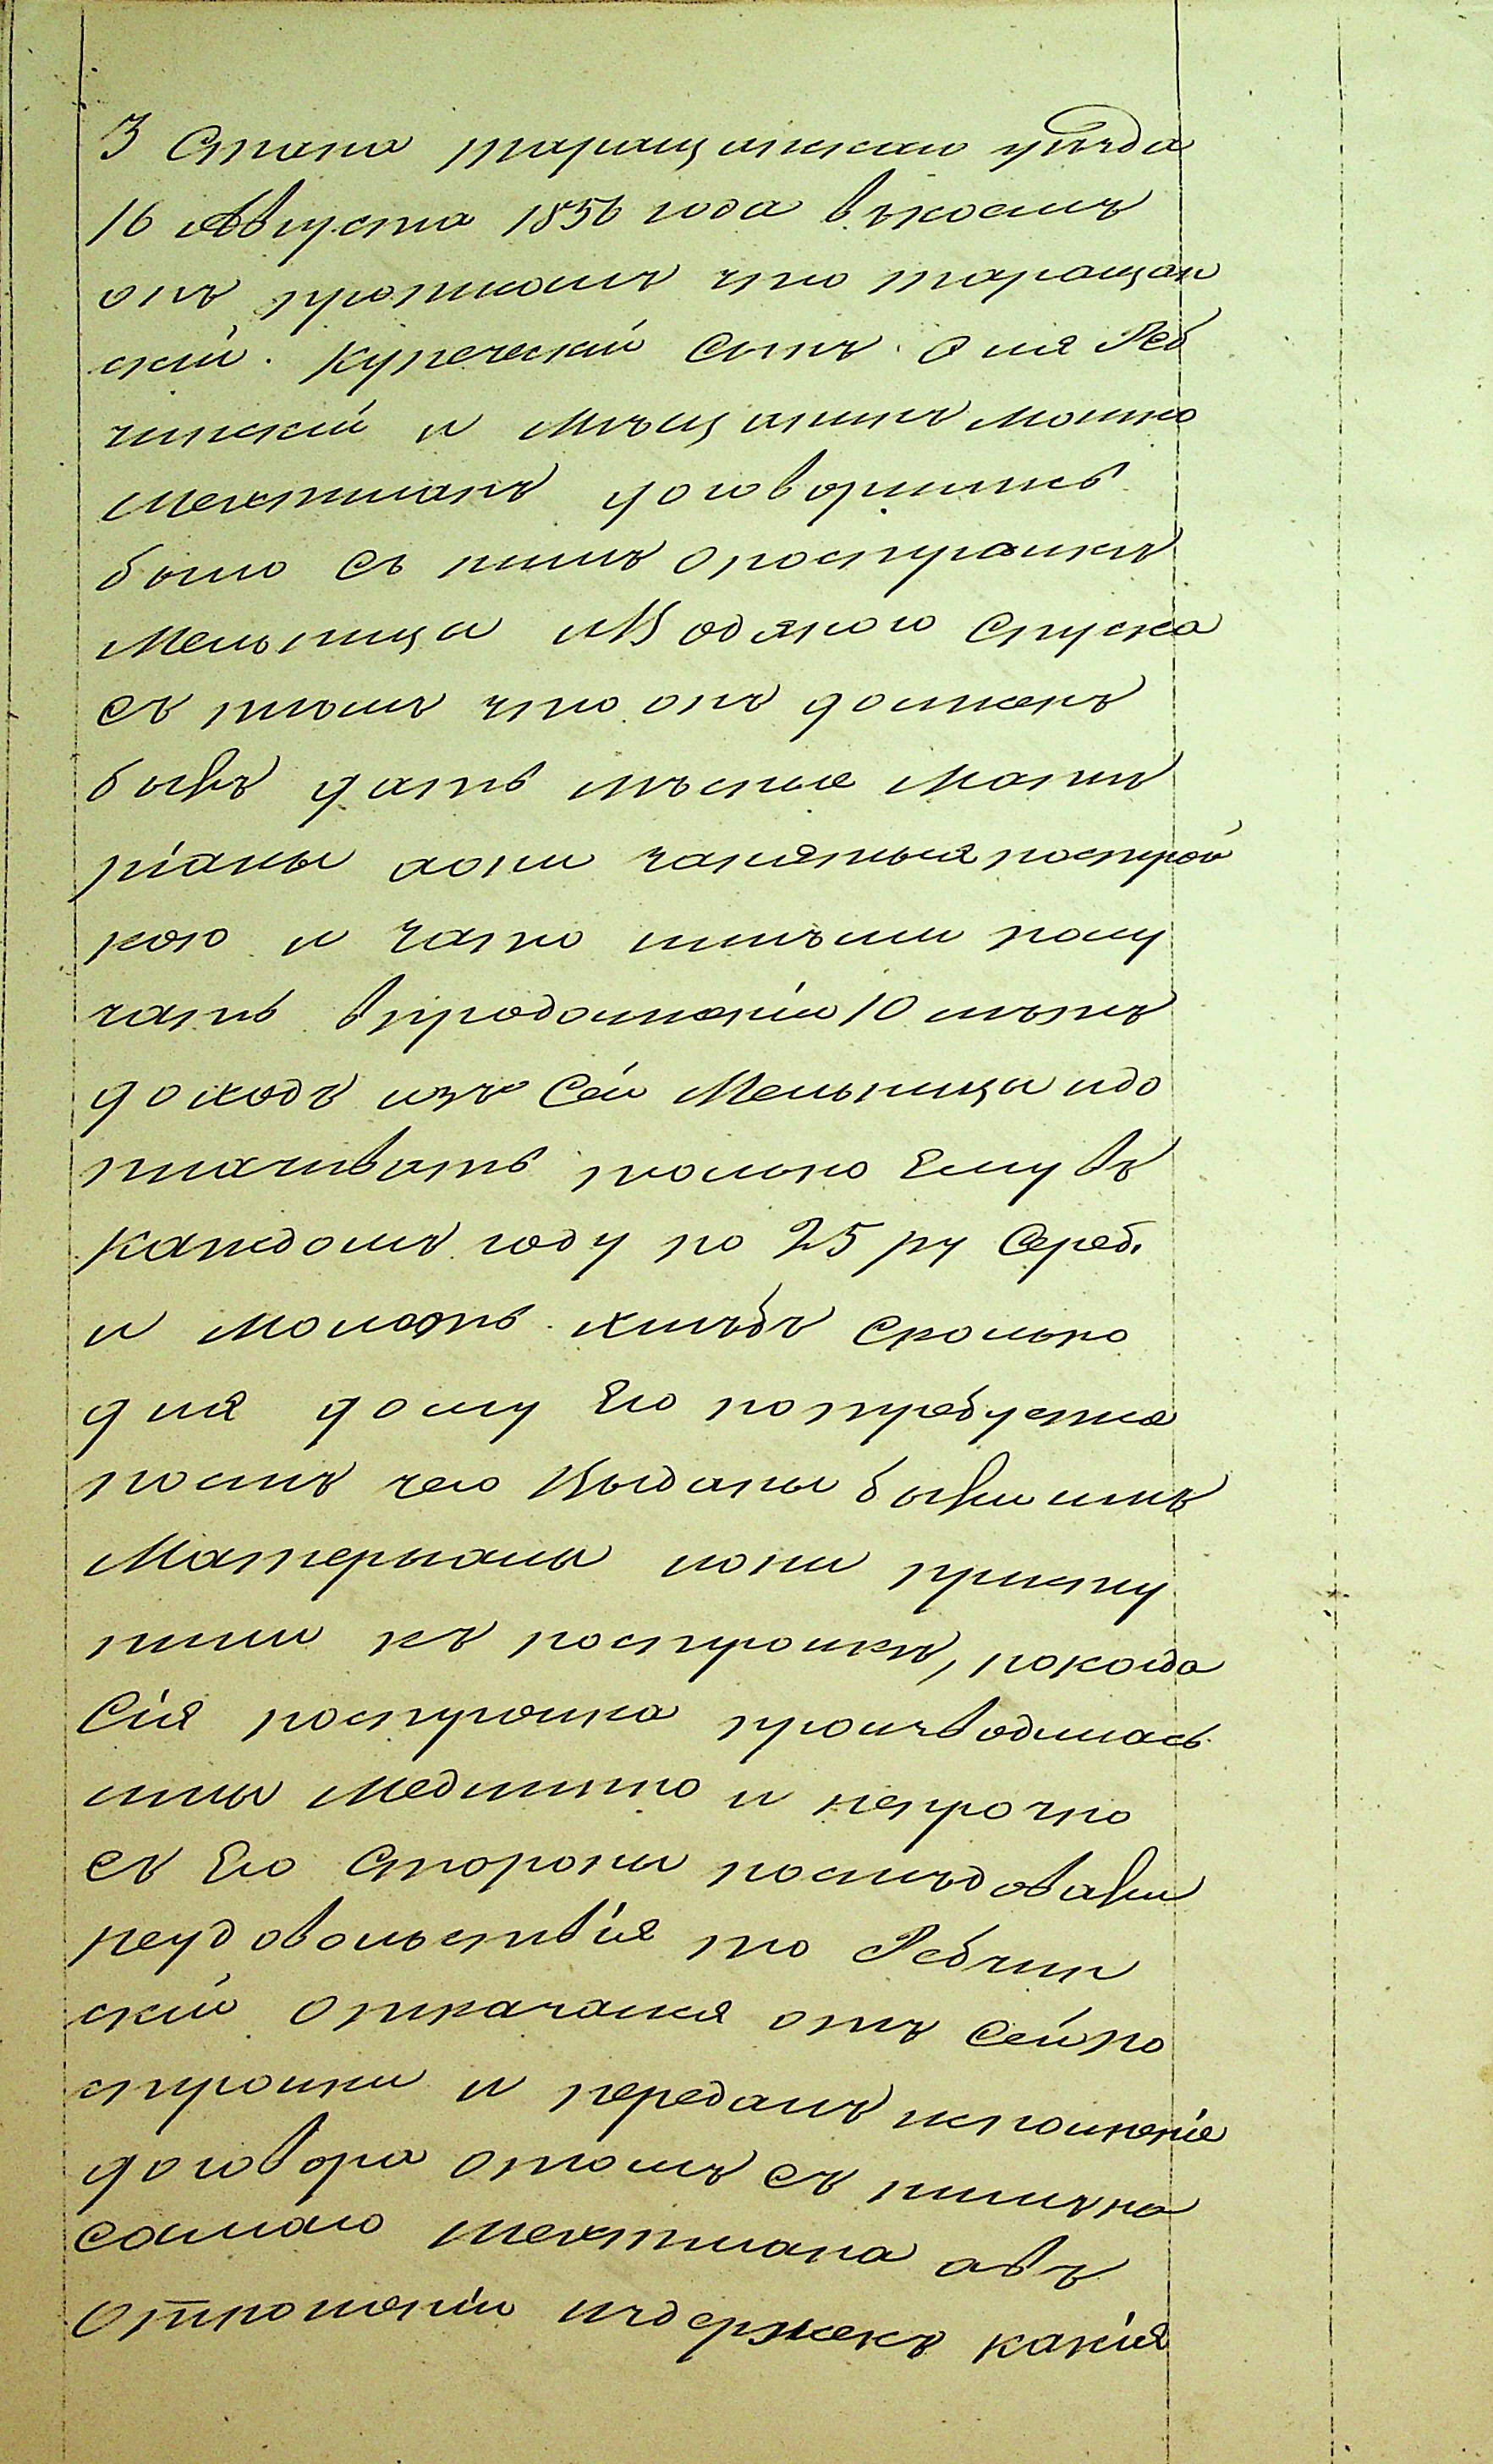 3 Стана таращанскаго уѣзда
16 Августа 1856 года въ коемъ
онъ прописалъ что таращан
скій купеческій Сынъ Оля Реб
чинскій и Мѣщанинъ Мошко
Мехтманъ договорились
было съ нимъ о постройкѣ
Мельницы и Водяного Спуска
съ тѣмъ что онъ долженъ
былъ дать лѣсные Мате
ріалы а они заняться построй
кою и зато имѣли полу
чать впродолженіи 10 лѣтъ
доходъ изъ Сей Мельницы и до
плачивать только Ему въ
каждомъ году по 25 ру Сереб.
и Молоть хлѣбъ Сколько
для дому Его потребуется
послѣ чего Выданы были имъ
Матерьялы и они присту
пили къ постройкѣ, но когда
Сія постройка производилась
ими Медлѣнно и непрочно
съ Его Стороны послѣдовали
неудовольствія то Ребчин
скій отказался отъ Сей по
стройки и передалъ исполненіе
договора о томъ съ нимъ на
самаго Мехтмана а въ
Отношеніи издержекъ какія